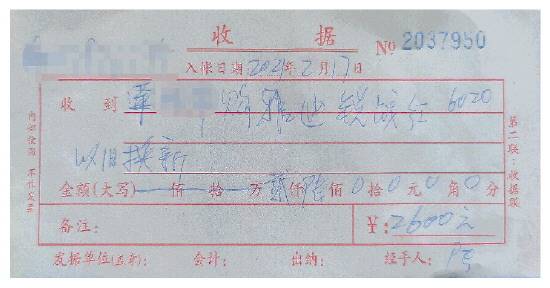 收 据 № 2037950
入账日期 2021年2月17日
收到 覃 雅迪 6020
以旧换新
金额(大写) 佰 拾 万 贰仟陆佰0拾0元0角0分
备注: ¥:2600元
发据单位(盖章) 会计: 出纳: 经手人:
第二联:收据联